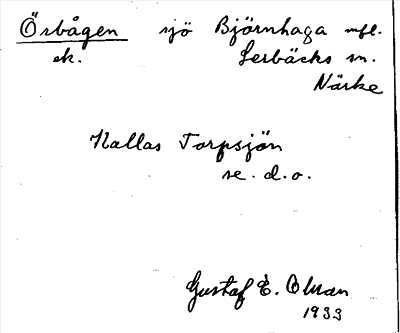 Örbågen sjö Björnhaga mfl.
ek. Lerbäcks sn.
Närke
Kallas Torpsjön
se. d.o.
Gustaf E. Ohman
1933